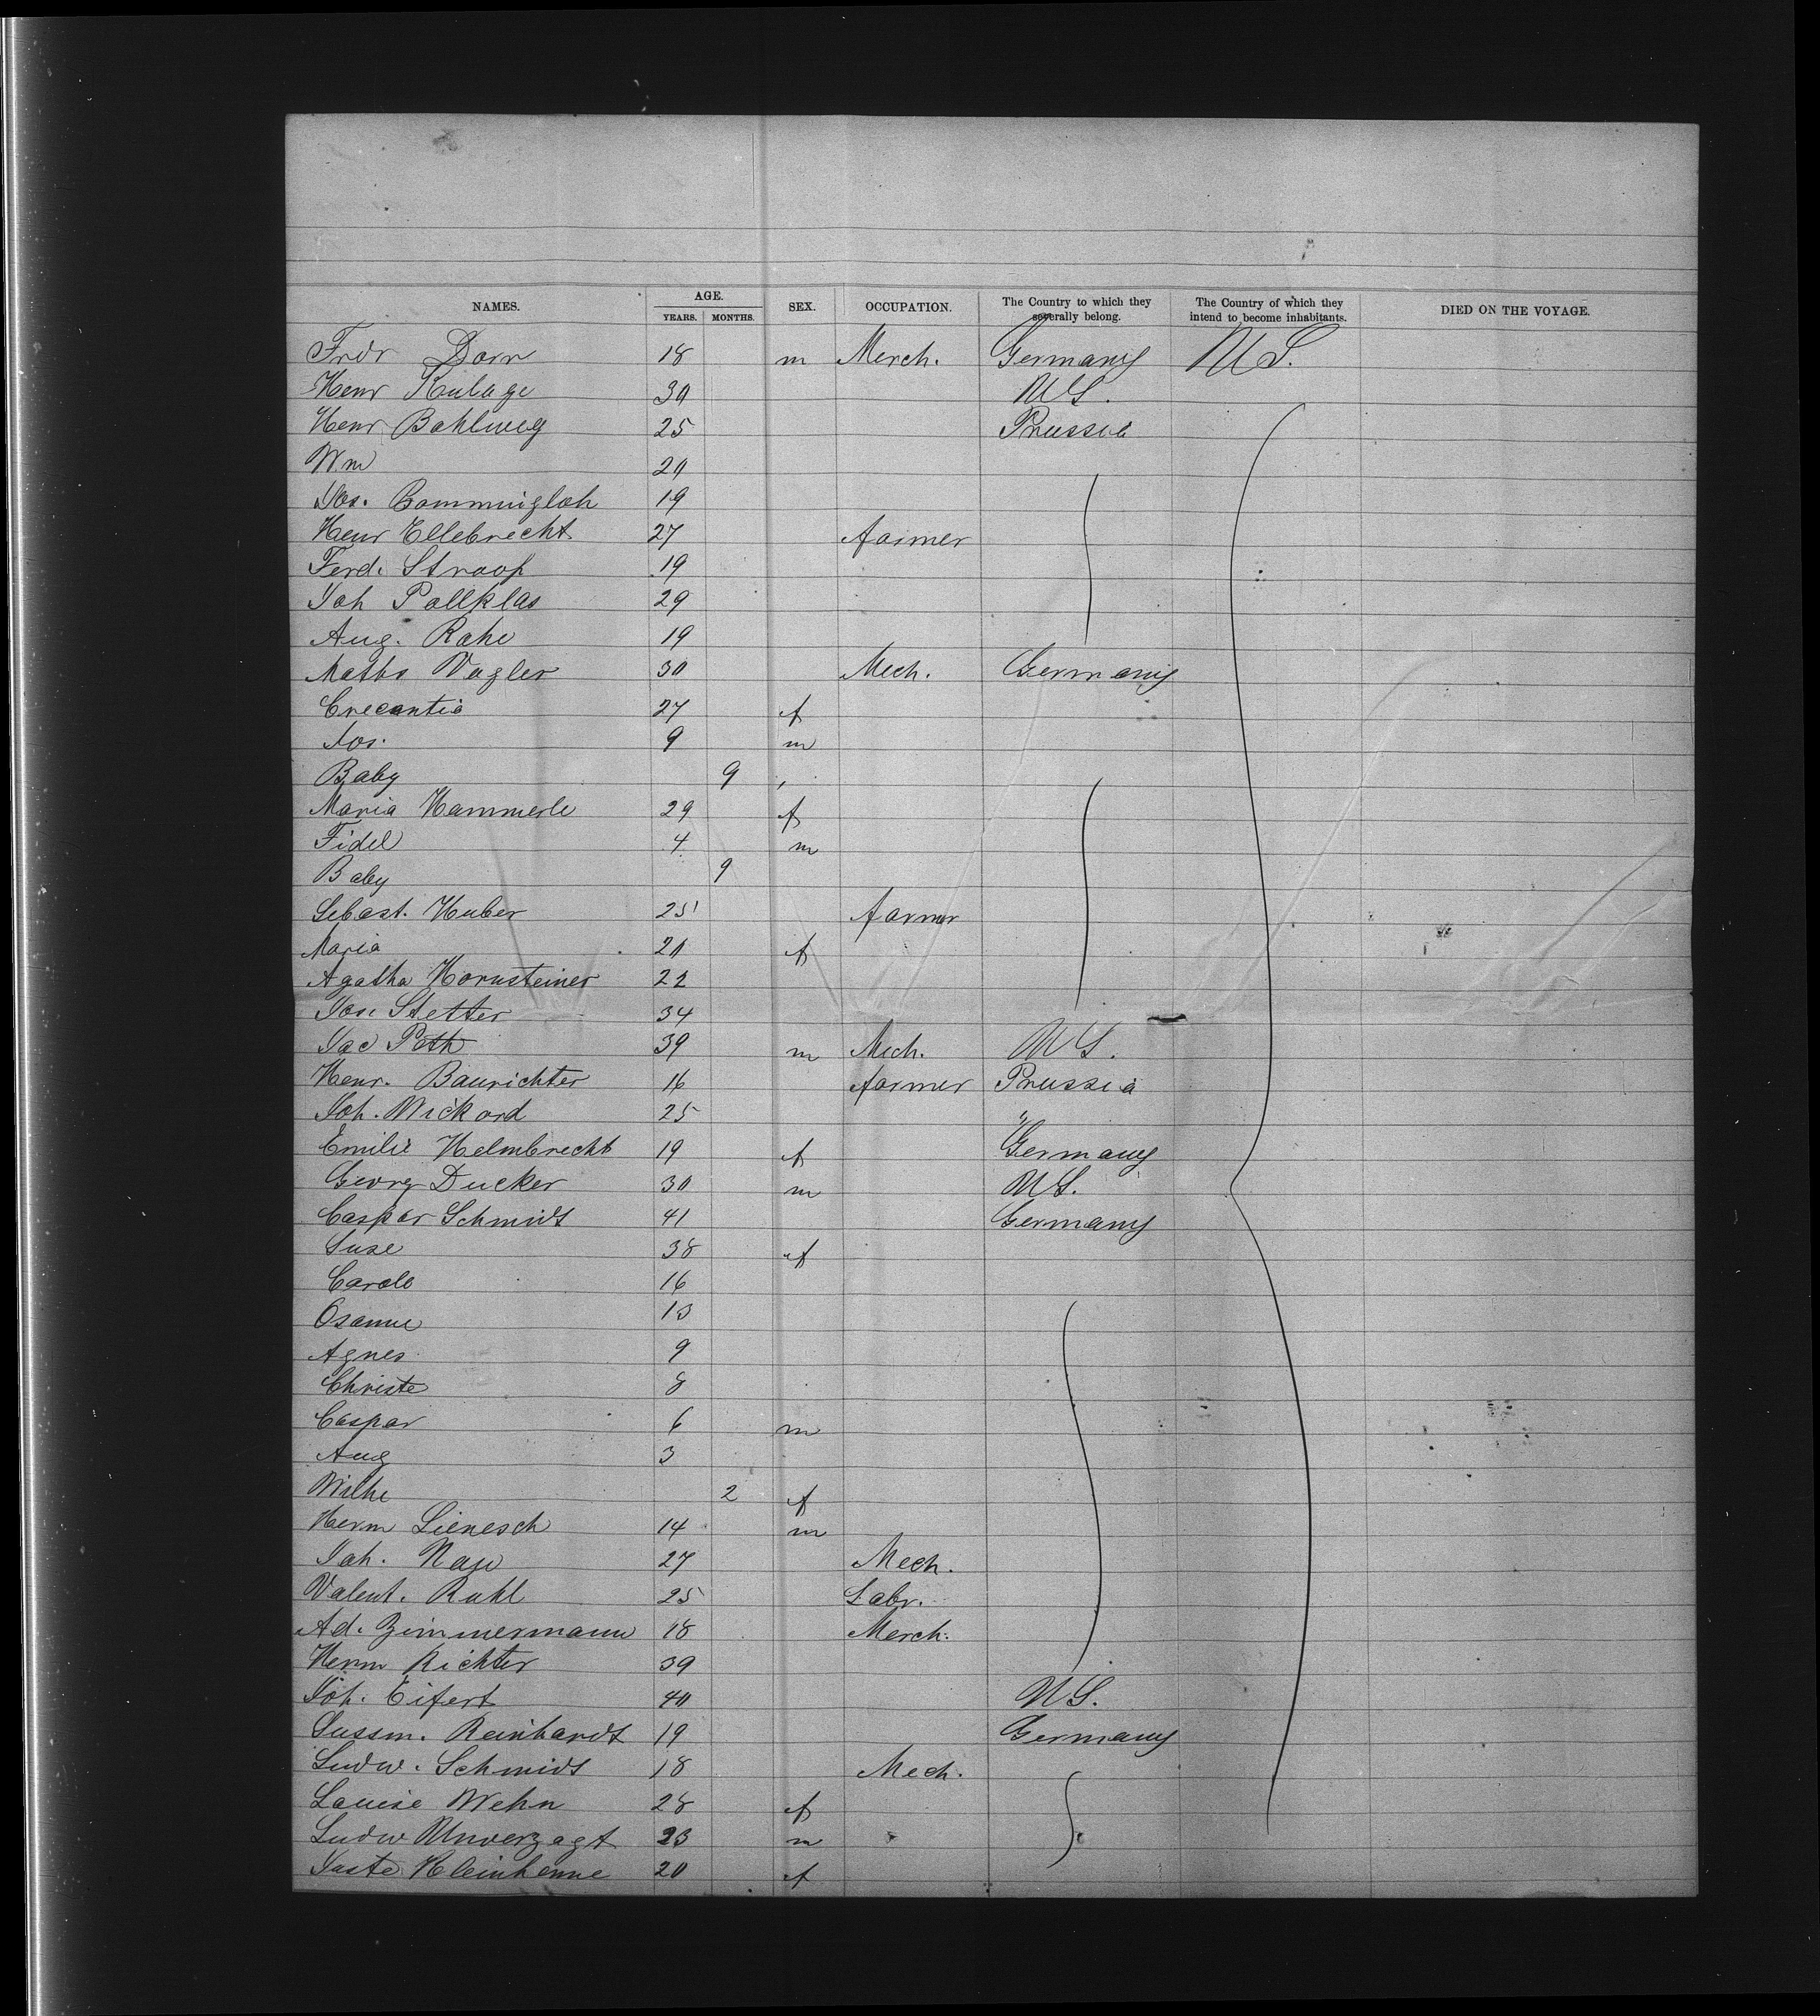 NAMES. AGE. SEX. OCCUPATION. The Country to which they severally belong. The Country of which they intend to become inhabitants. DIED ON THE VOYAGE.
YEARS. MONTHS.
Frdr Dorn 18 m Merch. Germany U S.
Henr Kulage 30 U S.
Henr Bohlweg 25 Prussia
Wm 20
Jos. 19
Henr Ellebrecht 27 farmer
Ferd. Stroop 19
Joh Pollklas 29
Aug. Rahe 19
Maths Vogler 30 Mech. Germany
Crecentia 27 f
Jos. 9 m
Baby 9 "
Maria Hammerle 29 f
Fidel 4 m
Baby 9
Sebast. Huber 25 farmer
Maria 20 f
Agatha Hornsteiner 22
Jos. Stetter 34
Jac Poth 39 m Mech. U S.
Henr. Baurichter 16 farmer Prussia
Joh. Wickord 25 "
Emilie Helmbrecht 19 f Germany
Georg Ducker 30 m U S.
Caspar Schmidt 41 Germany
Suse 38 f
Carole 16
Osanne 13
Agnes 9
Christe 8
Caspar 6 m
Aug 3
Wilhe 2 f
Herm Lienesch 14 m
Joh. 27 Mech.
Valent. Ruhl 25 Labr.
Ad. Zimmermann 18 Merch.
Herm Richter 39
Joh. Eifert 40 U S.
Sussm. Reinhardt 19 Germany
Ludw. Schmidt 18 Mech.
Louise Wehn 28 f
Ludw Unverzagt 23 m
Juste Kleinhenne 20 f